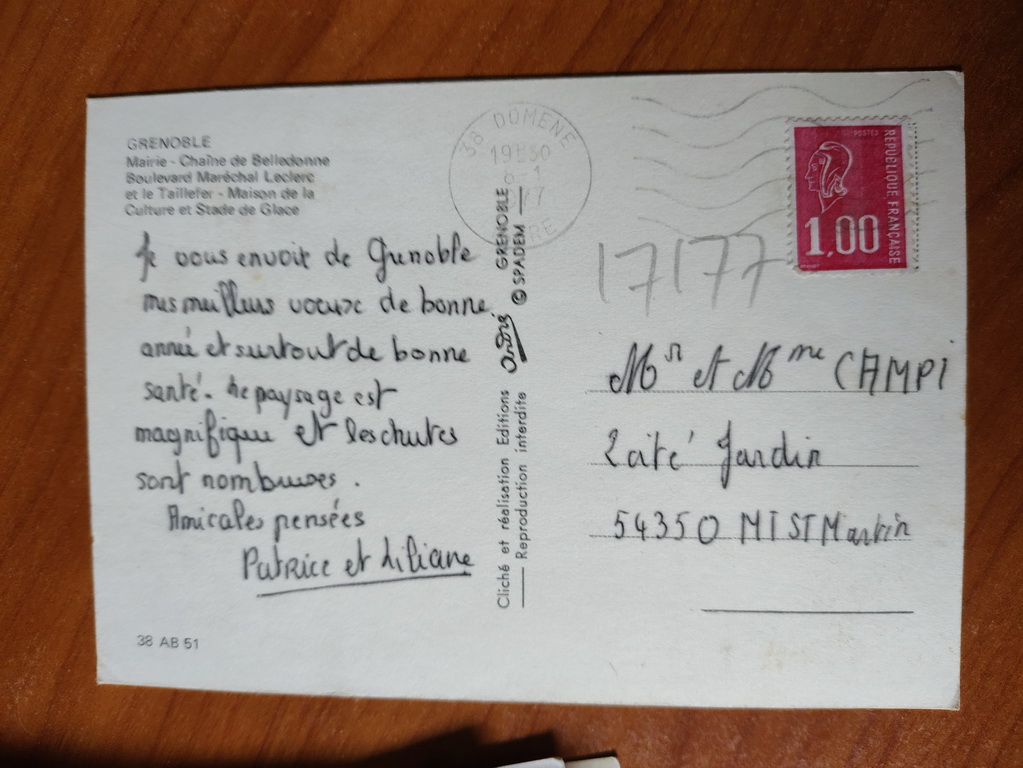 GRENOBLE
Mairie - Chaîne de Belledonne
Boulevard Maréchal Leclerc
et le Taillefer - Maison de la
Culture et Stade de Glace
Je vous envoit de Grenoble
mes meilleurs voeux de bonne
année et surtout de bonne
santé. Le paysage est
magnifique et les chutes
sont nombreuses.
Amicales pensées
Patrice et Liliane
38 AB 51
Cliché et réalisation Editions André GRENOBLE
Reproduction interdite © SPADEM
38 DOMENE
19H30
6-1
ISERE
REPUBLIQUE FRANÇAISE
POSTES
1,00
17177
Mr et Mme CHAMPI
2 cité Jardin
54350 MT ST Martin